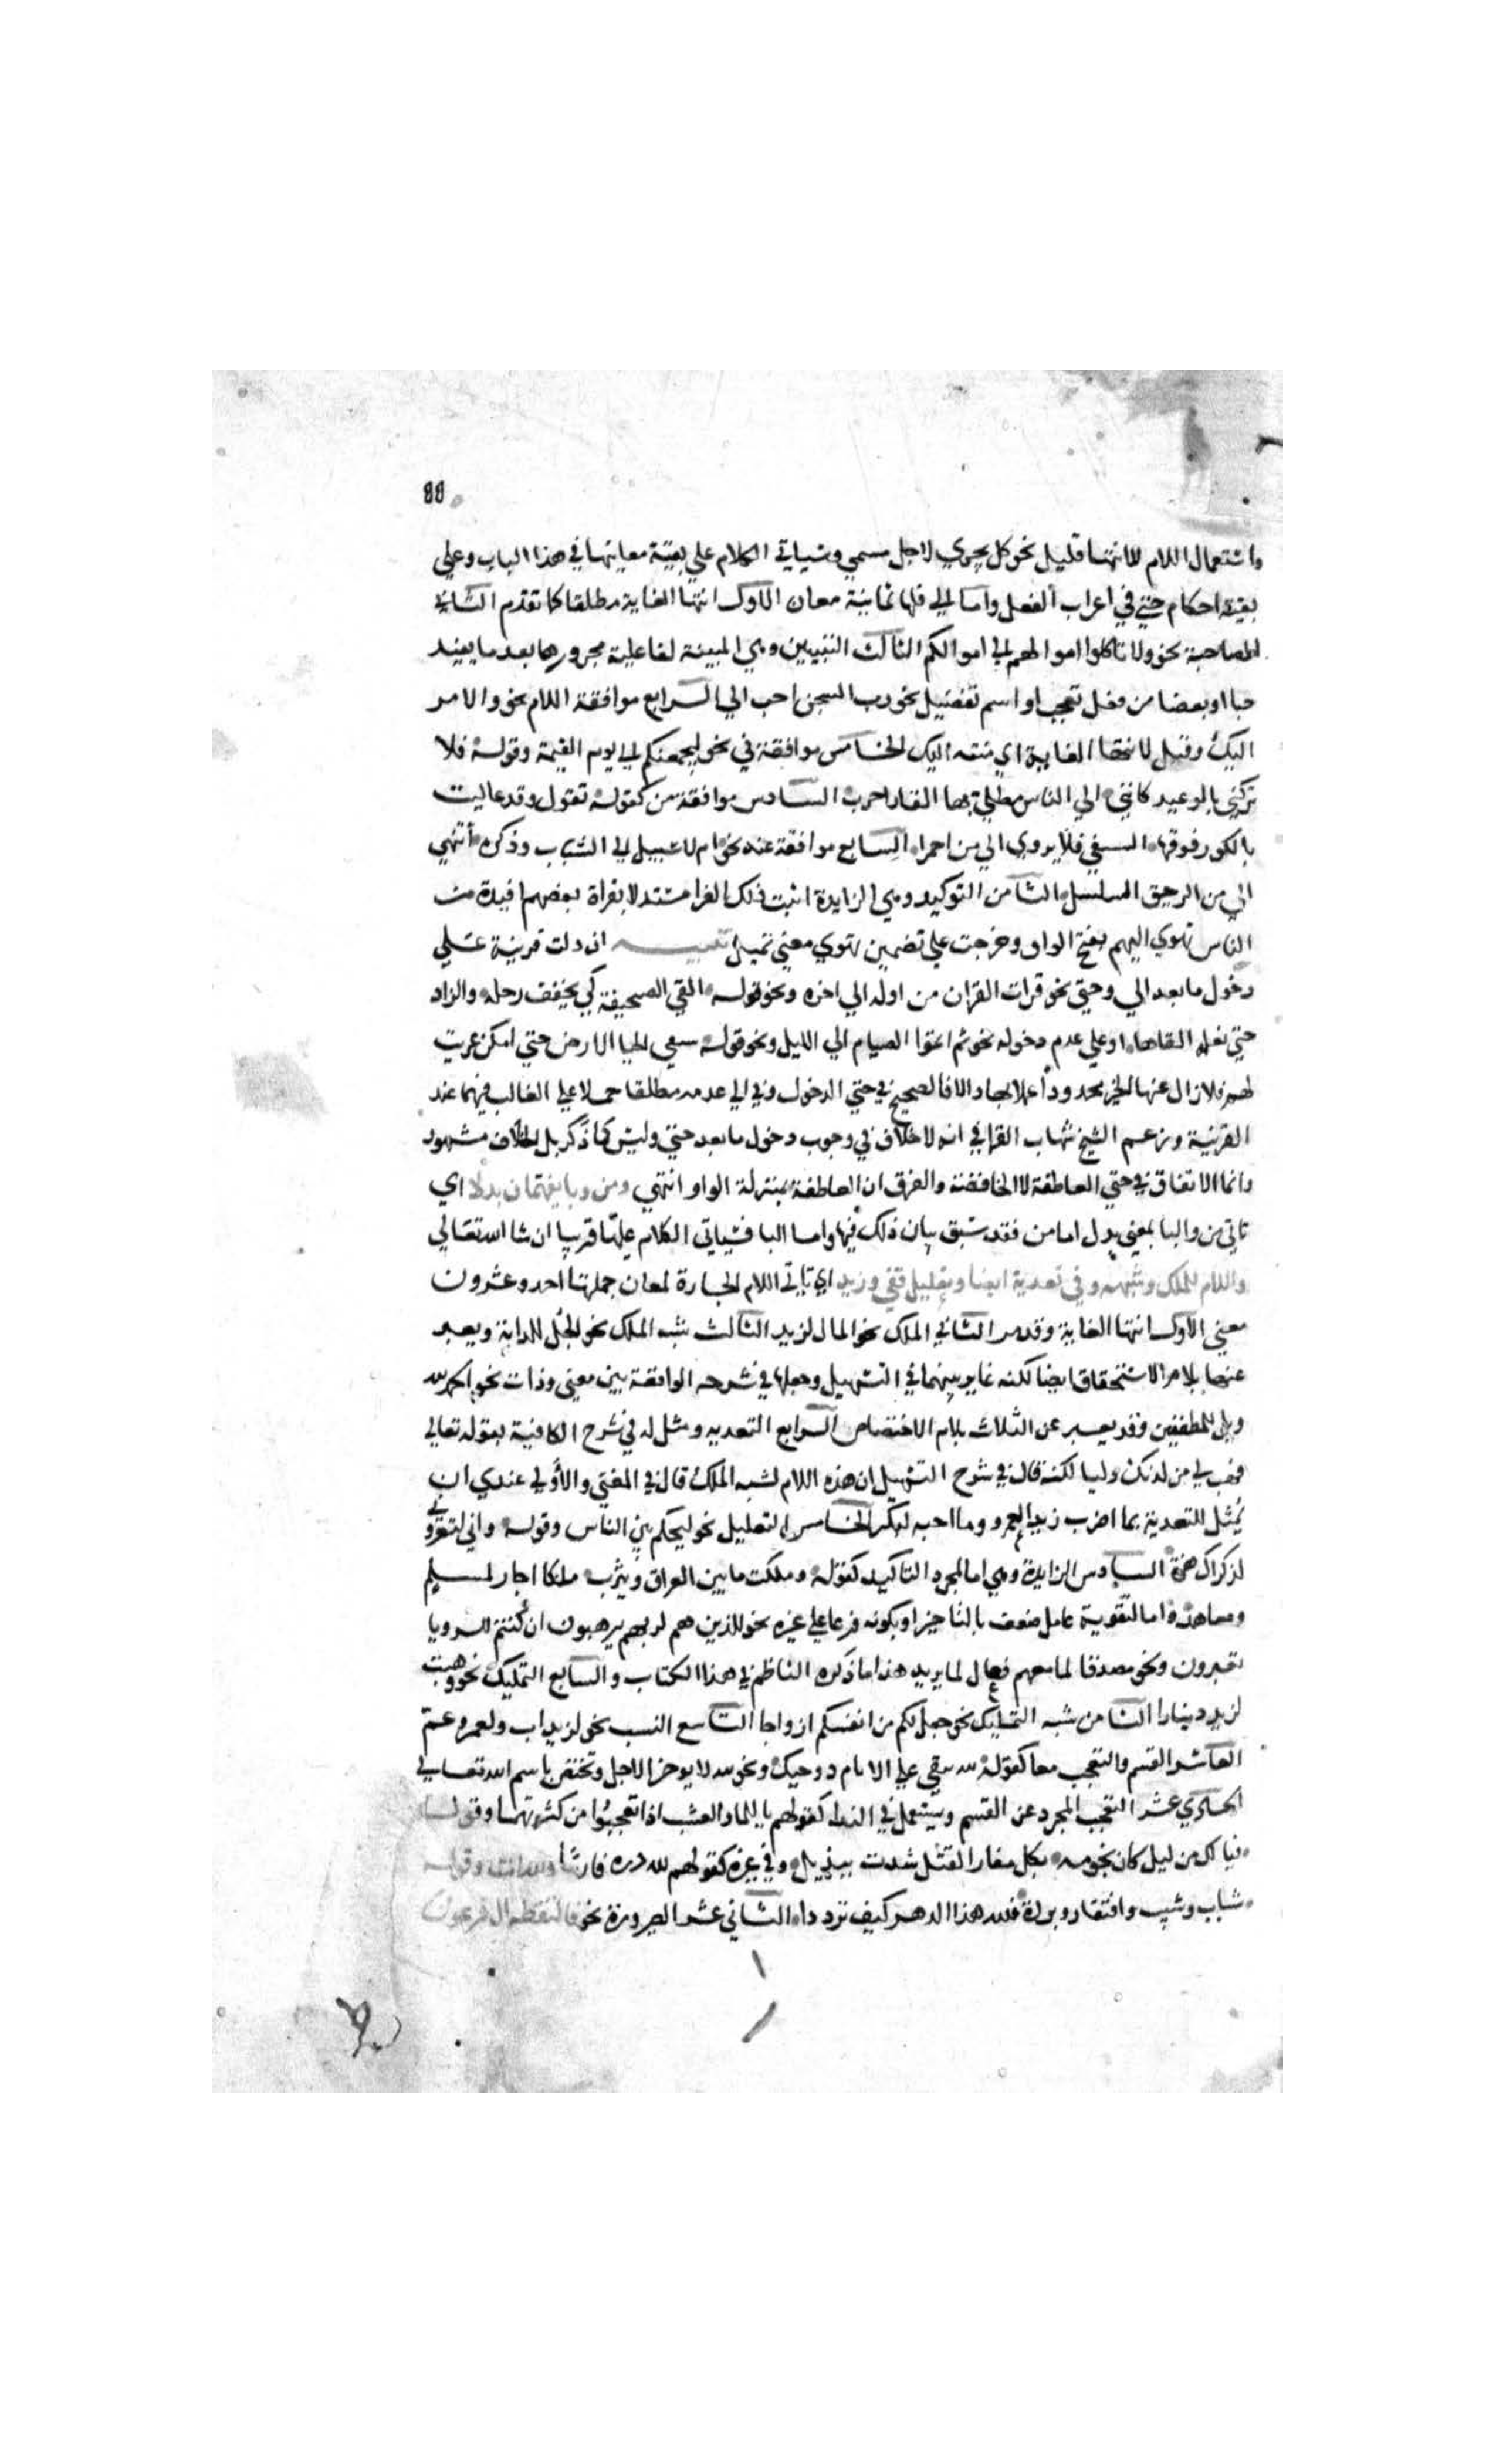 88
واستعمال اللام للانتها قليل نحو كل يجري لاجل مسمي وسياتي الكلام علي بقية معانيها في هذا الباب وعلي
بقية احكام حتي في اعراب الفعل واما الي فلها ثمانية معان الاول انتها الغاية مطلقا كما تقدم الثاني
المصاحبة نحو ولا تاكلوا اموالهم الي اموالكم الثالث التبيين وهي المبينة لفاعلية مجرورها بعد ما يفيد
حبا او بعضا من فعل تعجب او اسم تفضيل نحو رب السجن احب الي الرابع موافقة اللام نحو والامر
اليك وقيل لانتها الغاية اي منته اليك الخامس موافقة في نحو ليجمعنكم الي يوم القيمة وقوله فلا
تتركني بالوعيد كانني الي الناس مطلي بها القار اجرب السادس موافقة من كقوله تقول وقد عاليت
بالكور فوقها ايسقي فلا يروي الي من احمرا السابع موافقة عند نحو ام لا سبيل الي الشباب وذكره اشهي
الي من الرحيق السلسل الثامن التوكيد وهي الزايدة اثبت ذلك الفرا مستدلا بقراة بعضهم افيدة من
الناس تهوي اليهم بفتح الواو وخرجت علي تضمين تهوي معني تميل تنبيه ان دلت قرينة علي
دخول ما بعد الي وحتي نحو قرات القران من اوله الي اخره ونحو قوله القي الصحيفة كي يخفف رحله والزاد
حتي نعله القاها او علي عدم دخوله نحو ثم اتموا الصيام الي الليل ونحو قوله سقي الحيا الارض حتي امكن عزيت
لهم فلا زال عنها الخير محدودا عمل بها والا فالصحيح في حتي الدخول وفي الي عدمه مطلقا حملا علي الغالب فيهما عند
القرينة وزعم الشيخ شهاب القرافي انه لا خلاف في وجوب دخول ما بعد حتي وليس كما ذكر بل الخلاف مشهور
وانما الاتفاق في حتي العاطفة لا الخافضة والفرق ان العاطفة بمنزلة الواو انتهي ومن وبا يفهمان بدلا اي
تاتي من والبا بمعني بدل اما من فقد سبق بيان ذلك فيها واما البا فسياتي الكلام عليها قريبا ان شا الله تعالي
واللام للملك وشبهه وفي تعدية ايضا وتعليل قفي وزيد اي تاتي اللام الجارة لمعان جملتها احد وعشرون
معني الاول انتها الغاية وقد مر الثاني الملك نحو المال لزيد الثالث شبه الملك نحو الجل للدابة ويعبر
عنها بلام الاستحقاق ايضا لكنه غاير بينهما في التسهيل وجعلها في شرحه الواقعة بين معني وذات نحو الحمد لله
ويل للمطففين وقد يعبر عن الثلاث بلام الاختصاص الرابع التعدية ومثل له في شرح الكافية بقوله تعالي
فهب لي من لدنك وليا لكنه قال في شرح التسهيل ان هذه اللام لشبه الملك قال في المغني والاولي عندي ان
يمثل للتعدية بما اضرب زيدا لعمرو وما احبه لبكر الخامس التعليل نحو ليحكم بين الناس وقوله واني لتعروني
لذكراك هزة السادس الزايدة وهي اما لمجرد التاكيد كقوله وملكت ما بين العراق ويثرب ملكا اجار لمسلم
ومعاهد واما لتقوية عامل ضعف بالتاخير او بكونه فرعا علي غيره نحو للذين هم لربهم يرهبون ان كنتم للرويا
تعبرون ونحو مصدقا لما معهم فعال لما يريد هذا ما ذكره الناظم في هذا الكتاب والسابع التمليك نحو وهبت
لزيد دينارا الثامن شبه التمليك نحو جعل لكم من انفسكم ازواجا التاسع النسب نحو لزيد اب ولعمرو عم
العاشر القسم والتعجب معا كقوله لله يبقي علي الايام ذو حيد ونحو لله لا يوخر الاجل وتختص باسم الله تعالي
الحادي عشر التعجب المجرد عن القسم ويستعمل في الندا كقولهم يا للما والعشب اذا تعجبوا من كثرتهما وقوله
فيا لك من ليل كان نجومه بكل مغار الفتل شدت بيذبل وفي غيره كقولهم لله دره فارسا ولله انت وقوله
شباب وشيب وافتقار وبروة فلله هذا الدهر كيف ترددا الثاني عشر الصيرورة نحو فالتقطه ال فرعون